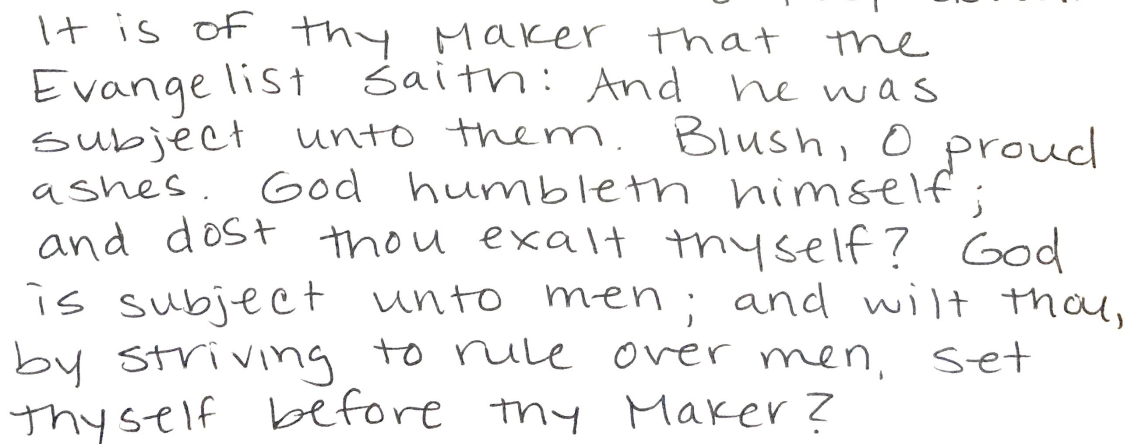 It is of thy Maker that the
Evangelist saith: And he was
subject unto them. Blush, O proud
ashes. God humbleth himself;
and dost thou exalt thyself? God
is subject unto men; and wilt thou,
by striving to rule over men, set
thyself before thy Maker?